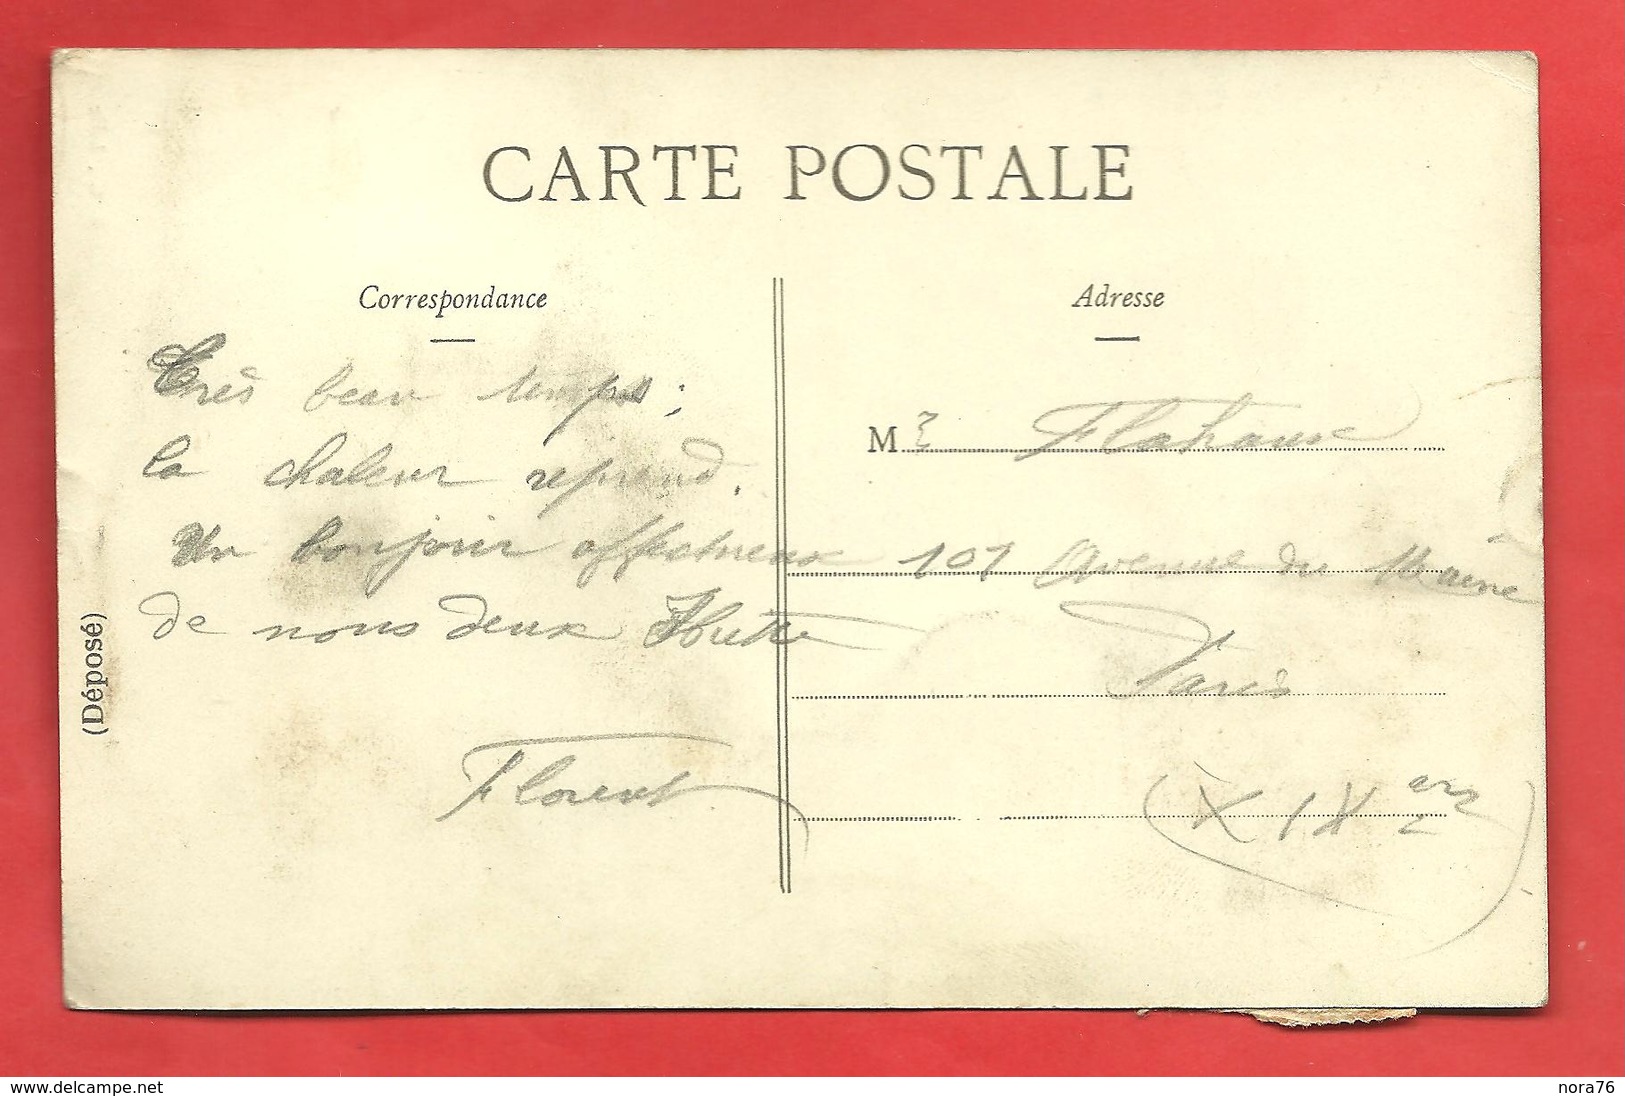 CARTE POSTALE
Correspondance
Très beau temps;
la chaleur reprend.
Un bonjour affectueux
de nous deux
Florent
(Déposé)
Adresse
M Flahaux
101 Avenue du Maine
Paris
(XIX
www.delcampe.net
nora76